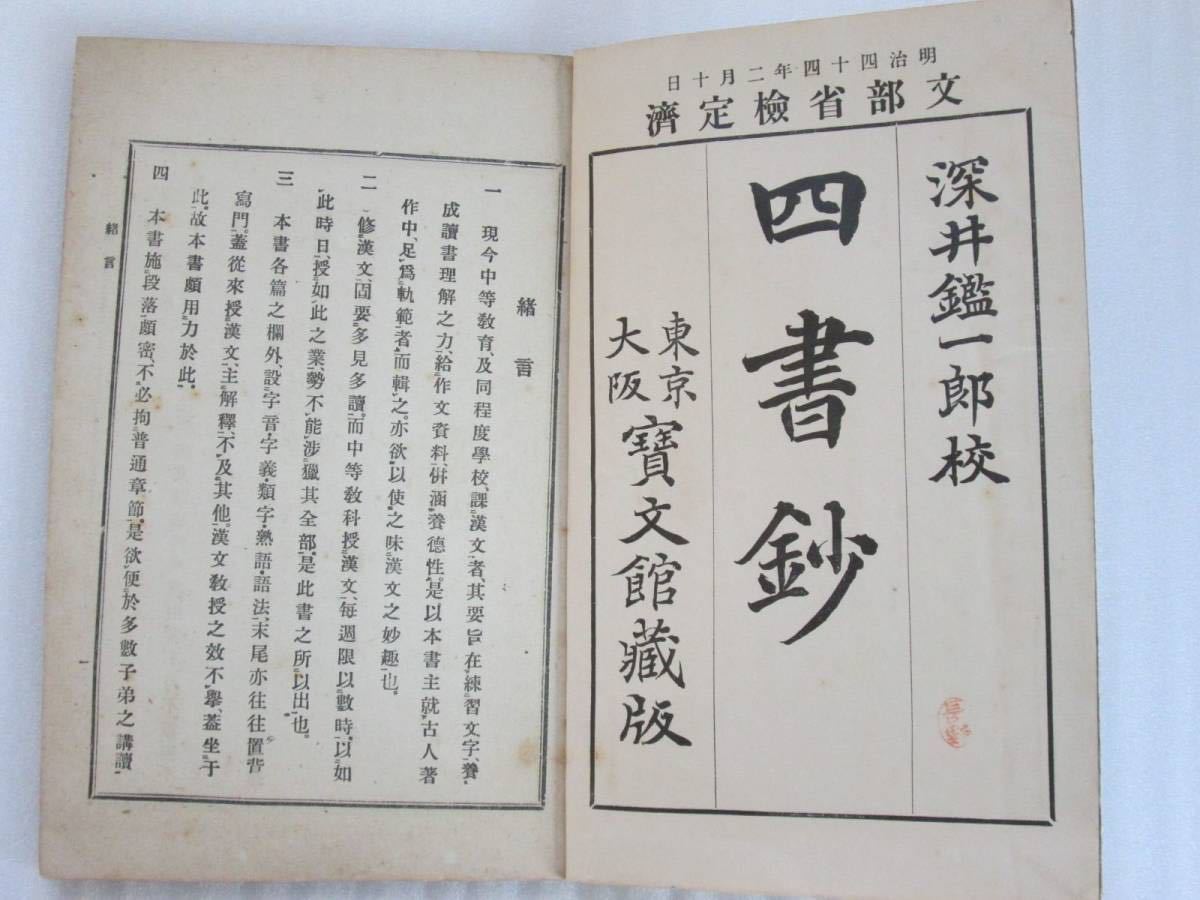 明治四十四年二月十日
文部省檢定濟
深井鑑一郎校
四書鈔
東京
大阪
寶文館藏版
緒言
一 現今中等敎育、及同程度學校、課漢文者、其要旨在練習文字、養
成讀書理解之力、給作文資料、倂涵養德性。是以本書主就古人著
作中、足爲軌範者、而輯之。亦欲以使之味漢文之妙趣也。
二 修漢文、固要多見多讀。而中等敎科授漢文、每週限以數時。以如
此時日、授如此之業、勢不能涉獵其全部。是此書之所以出也。
三 本書各篇之欄外、設字音・字義・類字・熟語・語法、末尾亦往往置背
寫門。蓋從來授漢文、主解釋、不及其他。漢文敎授之效不擧、蓋坐于
此。故本書頗用力於此。
四 本書施段落頗密、不必拘普通章節。是欲便於多數子弟之講讀、
緒言
一